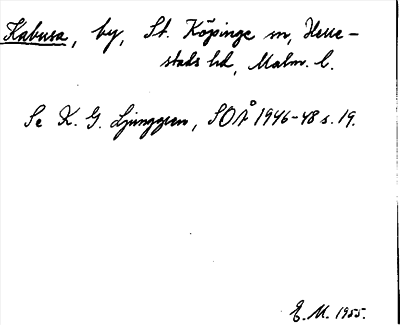 Kabusa, by, St. Köpinge sn, Herre-
stads hd, Malm. l.
Se K. G. Ljunggren, SOÅ 1946-48 s. 19.
E. M. 1955.